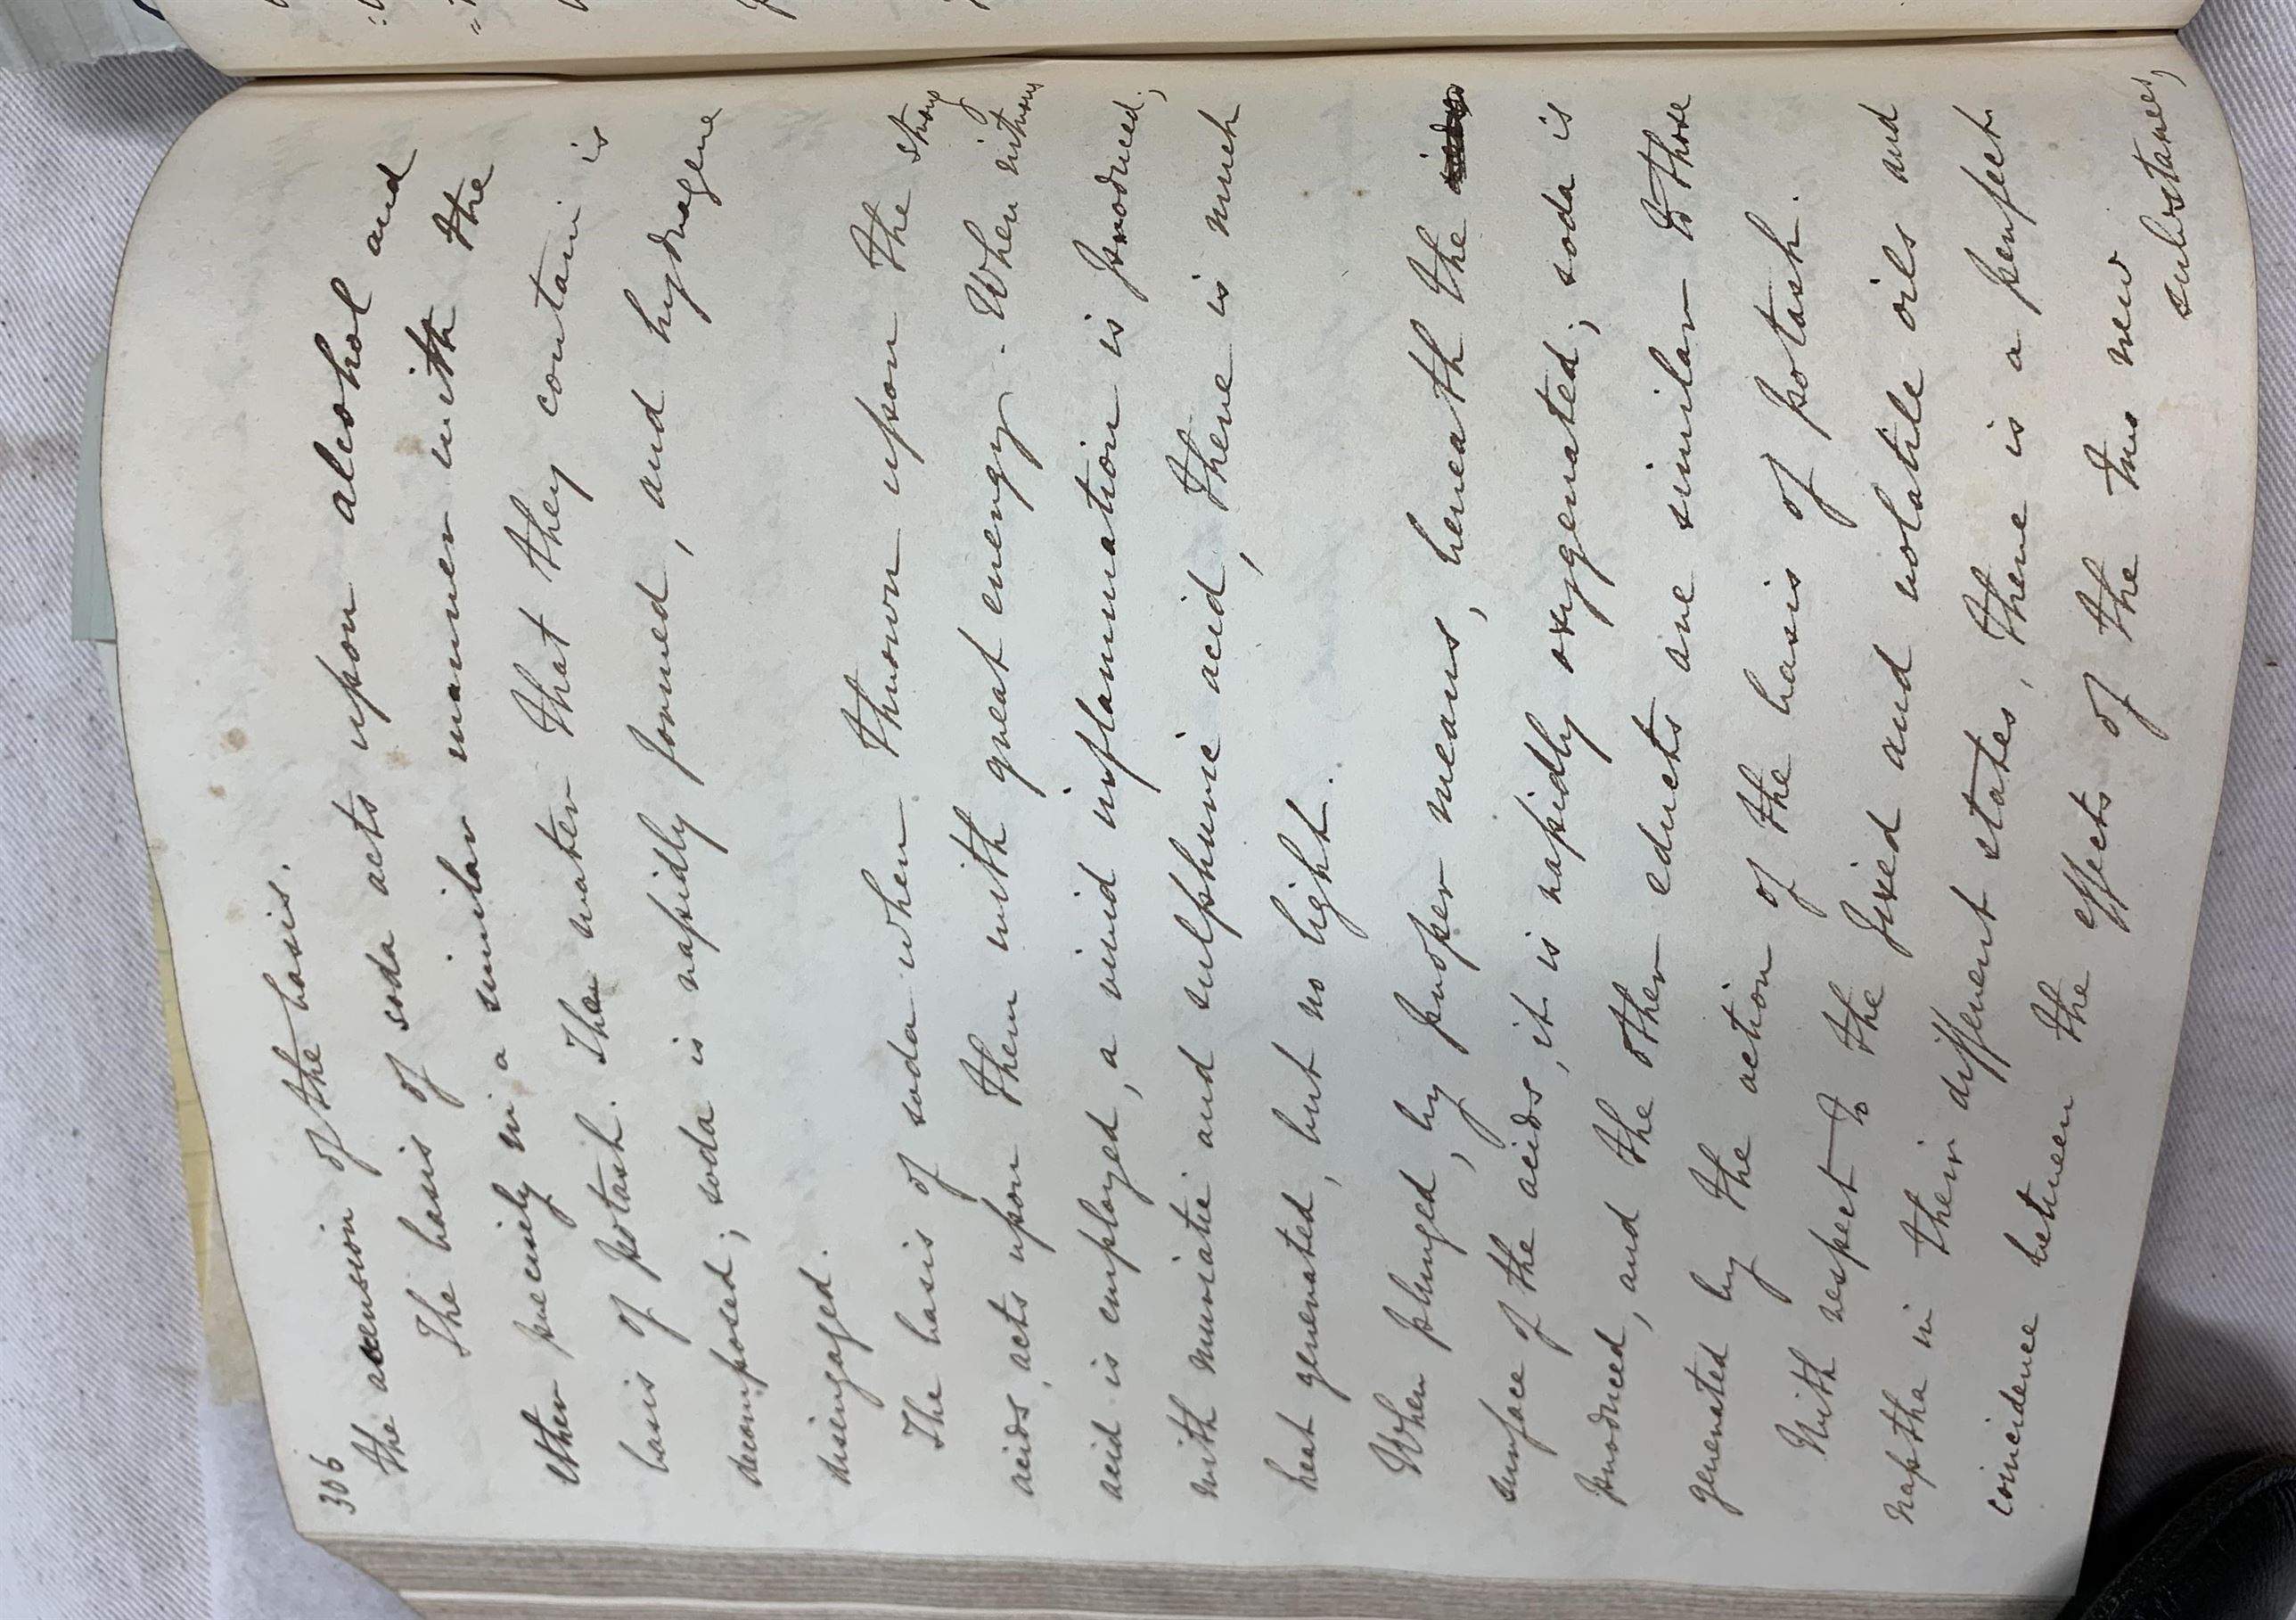 306
the accension of the basis.
The basis of soda acts upon alcohol and
ether precisely in a similar manner with the
basis of potash. The water that they contain is
decomposed; soda is rapidly formed, and hydrogene
disengaged.
The basis of soda when thrown upon the strong
acids, acts upon them with great energy. When nitrous
acid is employed, a vivid inflammation is produced;
with muriatic and sulphuric acid, there is much
heat generated, but no light.
When plunged, by proper means, beneath the
surface of the acids, it is rapidly oxygenated; soda is
produced, and the other educts are similar to those
generated by the action of the basis of potash.
With respect to the fixed and volatile oils and
naptha in their different states, there is a perfect
coincidence between the effects of the two new
substances,